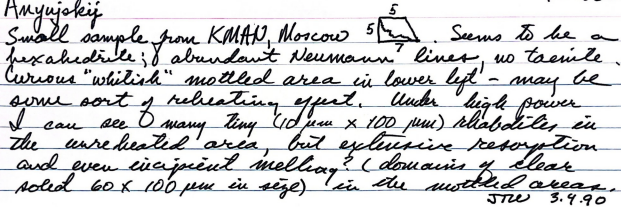 Anyujskij
Small sample from KMAN, Moscow 5 5 7. Seems to be a
hexahedrite; abundant Neumann lines, no taenite.
Curious "whitish" mottled area in lower left - may be
some sort of reheating effect. Under high power
I can see many tiny (10 µm x 100 µm) rhabdites in
the unreheated area, but extensive resorption
and even incipient melting? (domains of clear
solid 60 x 100 µm in size) in the mottled areas.
JTW 3.9.90